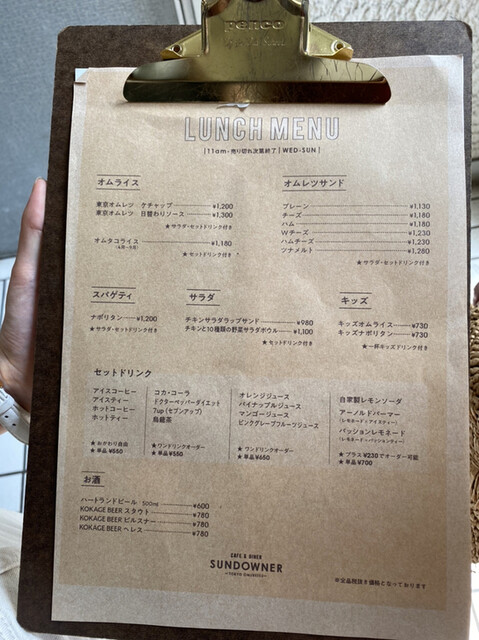 penco
LUNCH MENU
| 11am - 売り切れ次第終了 | WED-SUN |
オムライス
東京オムレツ ケチャップ ¥1,200
東京オムレツ 日替わりソース ¥1,300
★サラダ・セットドリンク付き
オムタコライス ¥1,180
★セットドリンク付き
オムレツサンド
プレーン ¥1,130
チーズ ¥1,180
ハム ¥1,180
Wチーズ ¥1,230
ハムチーズ ¥1,230
ツナメルト ¥1,280
★サラダ・セットドリンク付き
スパゲティ
ナポリタン ¥1,200
★サラダ・セットドリンク付き
サラダ
チキンサラダラップサンド ¥980
チキンと10種類の野菜サラダボウル ¥1,100
★セットドリンク付き
キッズ
キッズオムライス ¥730
キッズナポリタン ¥730
★一杯キッズドリンク付き
セットドリンク
アイスコーヒー
アイスティー
ホットコーヒー
ホットティー
★おかわり自由
★単品¥550
コカ・コーラ
ドクターペッパーダイエット
7up (セブンアップ)
烏龍茶
★ワンドリンクオーダー
★単品¥550
オレンジジュース
パイナップルジュース
マンゴージュース
ピンクグレープフルーツジュース
★ワンドリンクオーダー
★単品¥650
自家製レモンソーダ
アーノルドパーマー
(レモネード・アイスティー)
パッションレモネード
(レモネード・パッションティー)
★プラス¥230でオーダー可能
★単品¥700
お酒
ハートランドビール 500ml ¥600
KOKAGE BEER スタウト ¥780
KOKAGE BEER ピルスナー ¥780
KOKAGE BEER ヘレス ¥780
CAFE & DINER
SUNDOWNER
※全品税抜き価格となっております